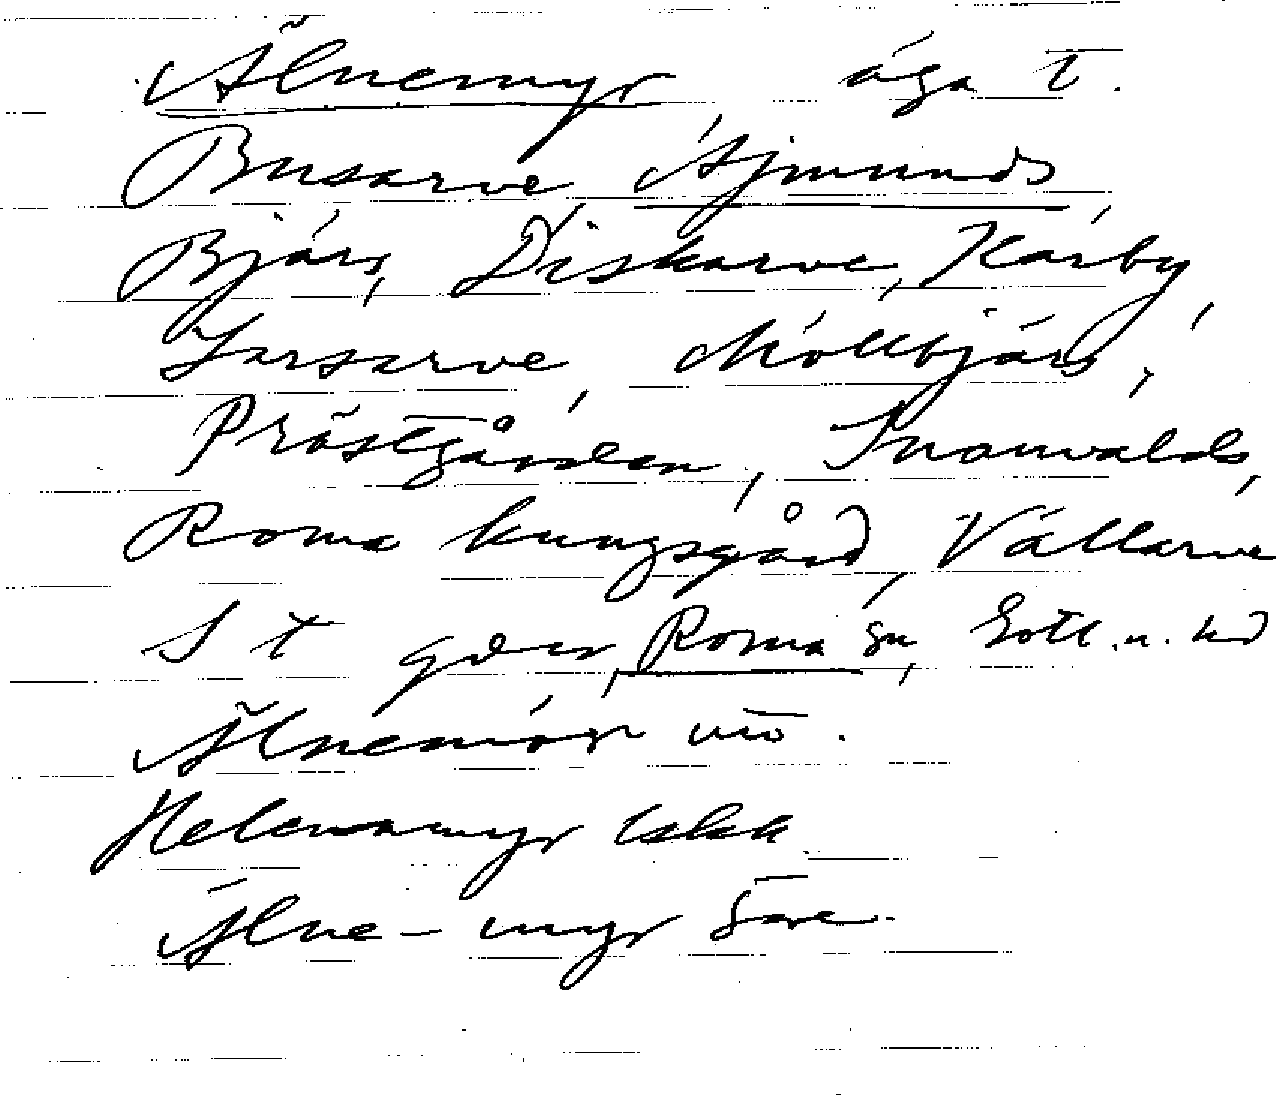 Älnemyr äga t.
Busarve, Ajmunds,
Bjärs, Diskarve, Kärby,
Larsarve, Möllbjärs,
Prästgården, Snovalds,
Roma kungsgård, Vallarve
S t gdar, Roma sn, Gotl. n. hd
Älnemör
Helenamyr
Älne - myr